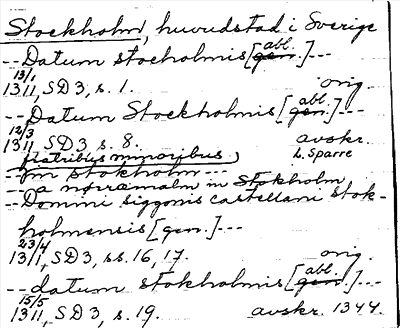 Stockholm, huvudstad i Sverige
-- Datum stocholmis [gen. abl.] ---
13/1 1311, SD 3, s. 1. orig.
-- Datum Stockholmis [gen. abl.] ---
12/3 1311, SD 3, s. 8. avskr. L. Sparre
fratribus minoribus
in stokholm ---
-- a norræmalm in Stokholm
-- Domini siggonis castellani stok-
holmensis [gen.] ---
23/4 1311, SD 3, ss. 16, 17. orig.
-- datum stokholmis [gen. abl.] ---
15/5 1311, SD 3, s. 19. avskr. 1344.